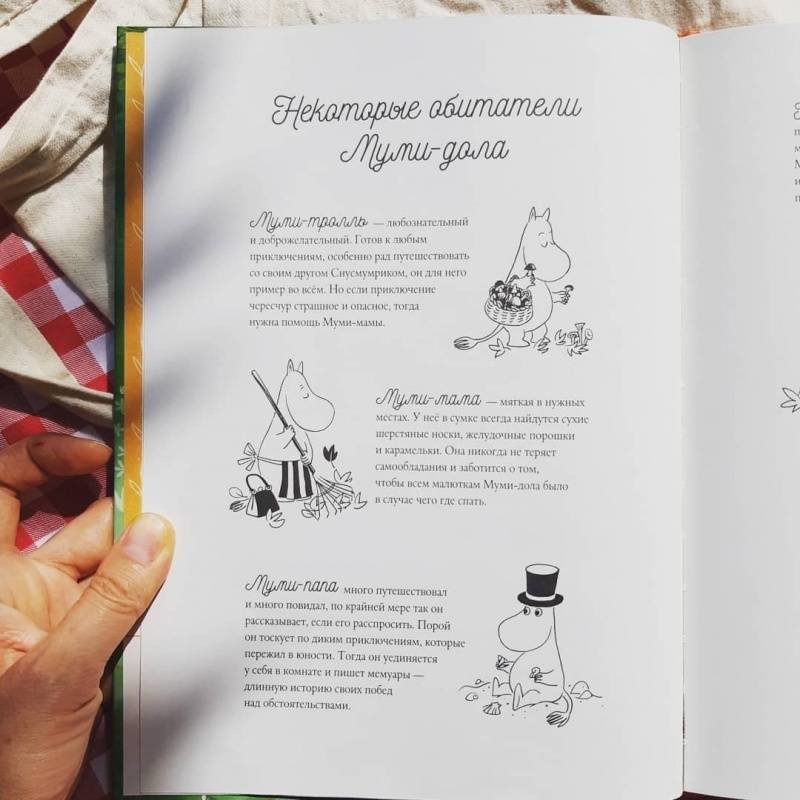 Некоторые обитатели
Муми-дола
Муми-тролль — любознательный
и доброжелательный. Готов к любым
приключениям, особенно рад путешествовать
со своим другом Снусмумриком, он для него
пример во всём. Но если приключение
чересчур страшное и опасное, тогда
нужна помощь Муми-мамы.
Муми-мама — мягкая в нужных
местах. У неё в сумке всегда найдутся сухие
шерстяные носки, желудочные порошки
и карамельки. Она никогда не теряет
самообладания и заботится о том,
чтобы всем малюткам Муми-дола было
в случае чего где спать.
Муми-папа много путешествовал
и много повидал, по крайней мере так он
рассказывает, если его расспросить. Порой
он тоскует по диким приключениям, которые
пережил в юности. Тогда он уединяется
у себя в комнате и пишет мемуары —
длинную историю своих побед
над обстоятельствами.